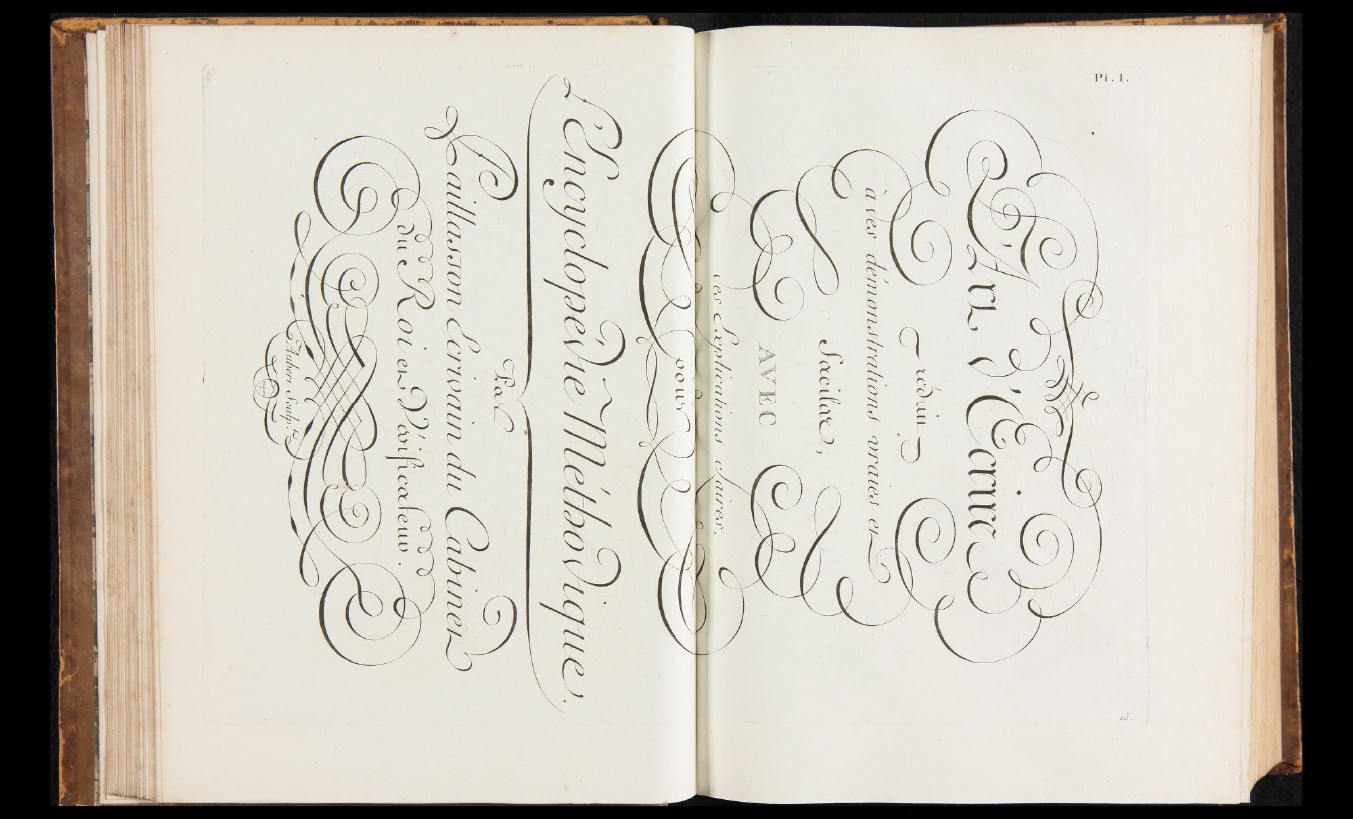 Pl. 1.
L'Art d'Ecrire
réduit
à des démonstrations vraies et
faciles,
AVEC
des Explications claires,
pour
L'Encyclopédie Méthodique.
Par
Paillasson Ecrivain du Cabinet
du Roi et Vérificateur.
Aubin Sculp.
15.